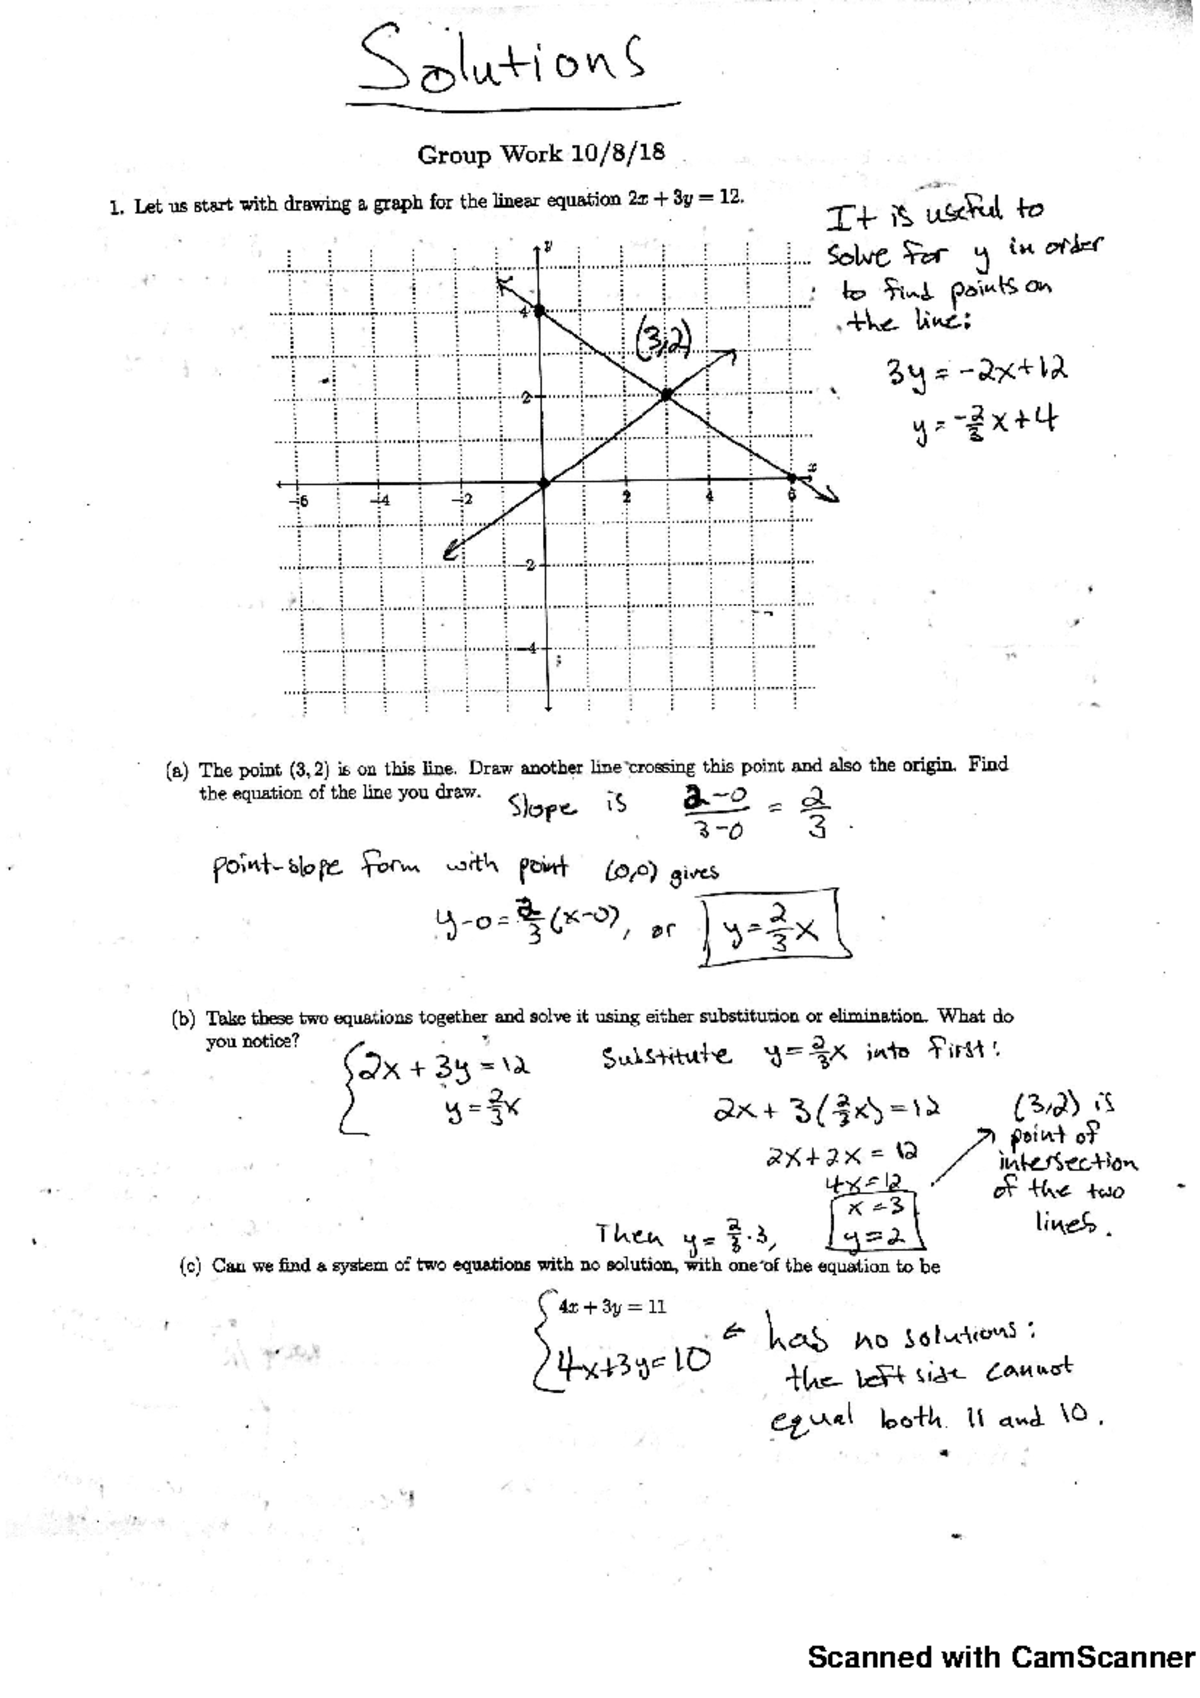 Solutions
Group Work 10/8/18
1. Let us start with drawing a graph for the linear equation 2x + 3y = 12.
It is useful to
solve for y in order
to find points on
the line:
3y = -2x+12
y = -2/3 x + 4
y
4
(3,2)
2
x
-6 -4 -2 2 4 6
-2
-4
(a) The point (3, 2) is on this line. Draw another line crossing this point and also the origin. Find
the equation of the line you draw.
Slope is 2-0/3-0 = 2/3.
point-slope form with point (0,0) gives
y-0 = 2/3 (x-0), or y = 2/3 x
(b) Take these two equations together and solve it using either substitution or elimination. What do
you notice?
{2x + 3y = 12
y = 2/3 x
Substitute y = 2/3 x into first:
2x + 3(2/3 x) = 12
2x + 2x = 12
4x = 12
x = 3
Then y = 2/3 · 3, y = 2
(3,2) is
point of
intersection
of the two
lines.
(c) Can we find a system of two equations with no solution, with one of the equation to be
{4x + 3y = 11
4x+3y=10
← has no solutions:
the left side cannot
equal both 11 and 10.
Scanned with CamScanner